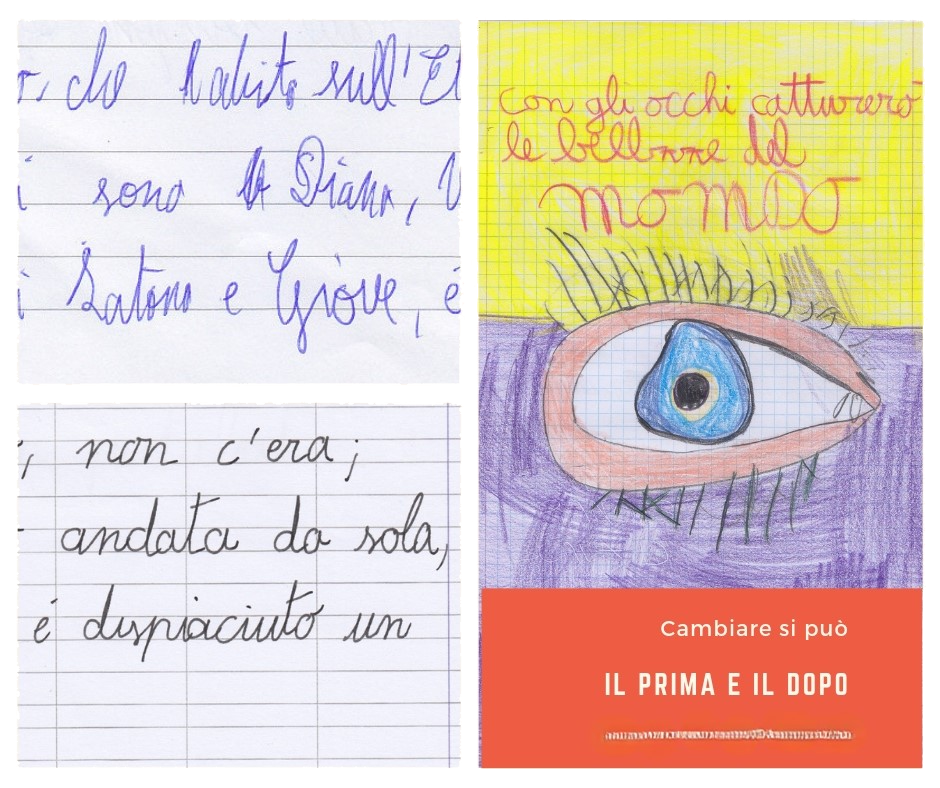 , che habito sull'Et
i sono A Diana, V
i Satono e Giove, é
, non c'era;
andata da sola,
é dispiaciuto un
con gli occhi catturerò
le bellezze del
MOMDO
Cambiare si può
IL PRIMA E IL DOPO